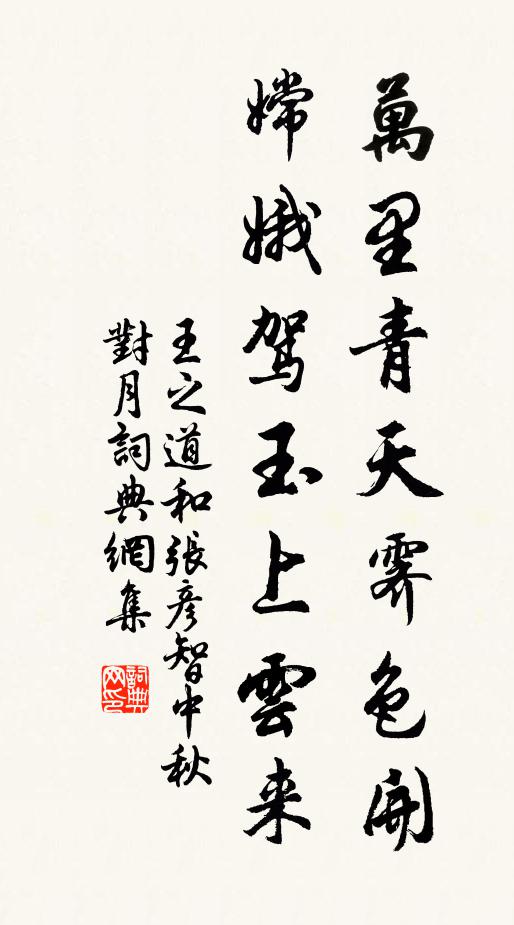 萬里青天霽色開
嫦娥駕玉上雲来
王之道和張彦智中秋
對月詞典網集
詞典
网印